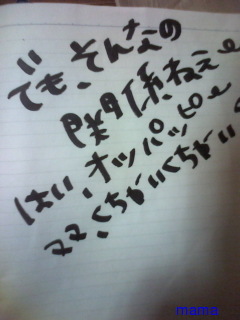 でも、そんなの
関係ねぇ〜
はい、オッパッピ〜
ママ、くちがいくちがい
mama